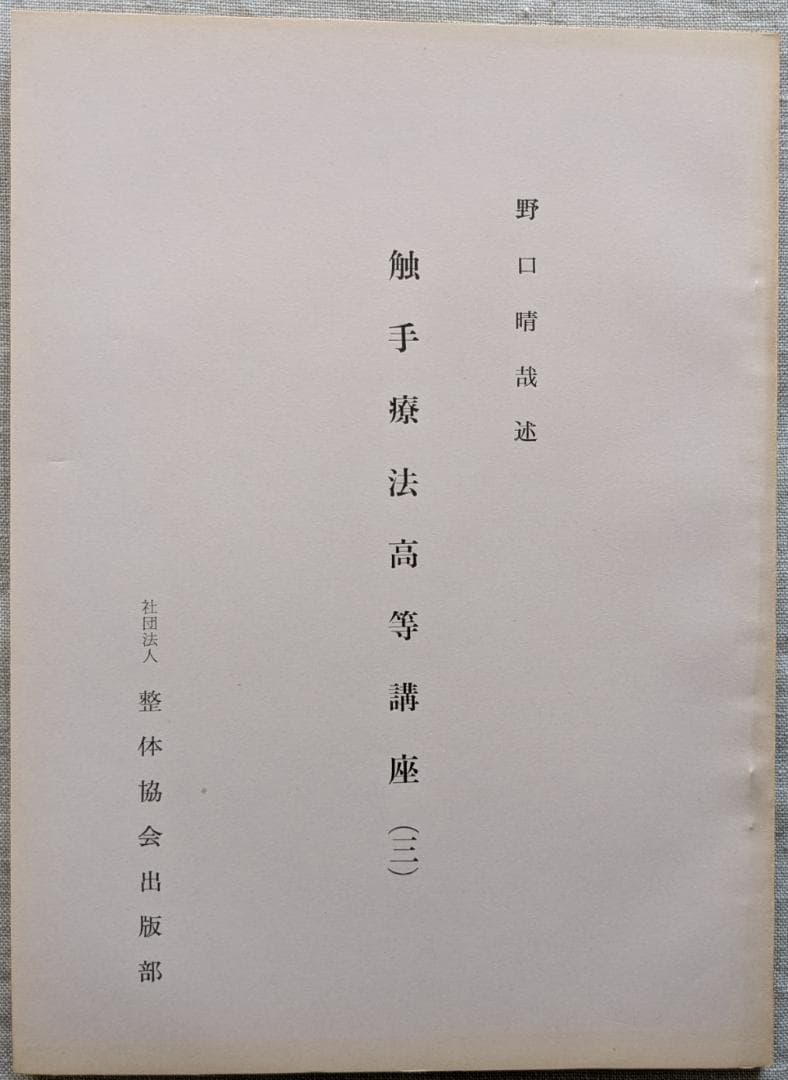 野口晴哉述
触手療法高等講座（三）
社団法人 整体協会出版部